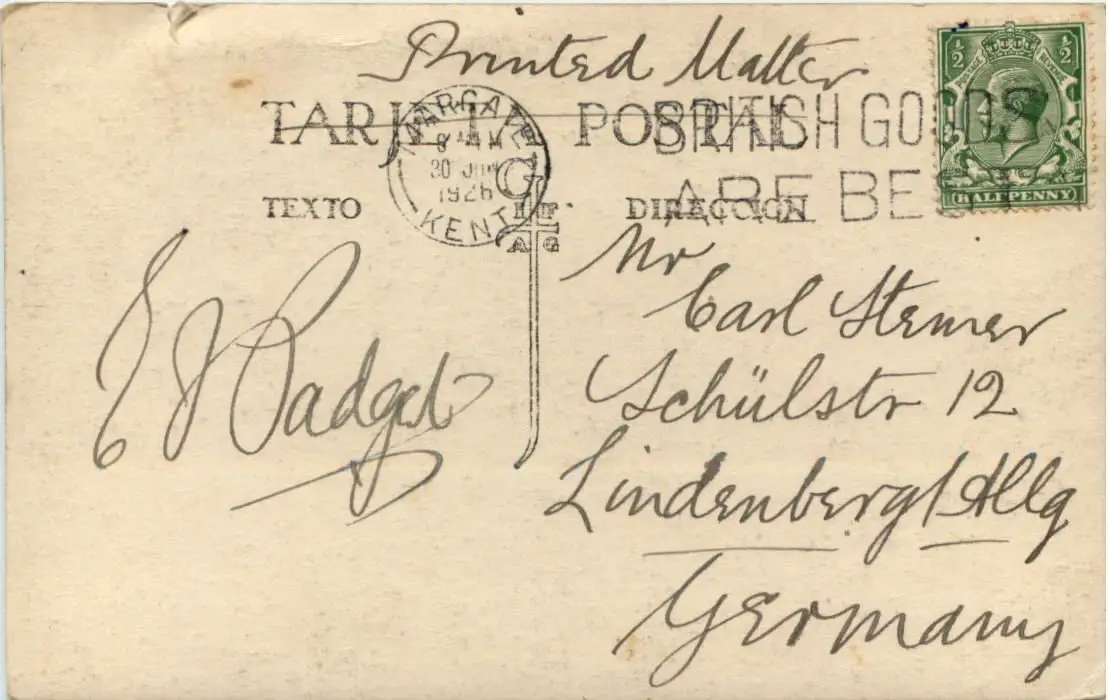 Printed Matter
TARJETA POSTAL
MARGATE
8 AM
30 JUN
1926
KENT
BRITISH GOODS
ARE BEST
½ ½
POSTAGE REVENUE
HALFPENNY
TEXTO
DIRECCION
Mr
Carl Stemer
Schülstr 12
Lindenberg/Allg
Germany
E J Padget